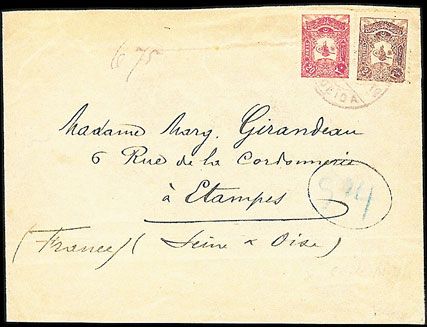 675
Madame Marg. Girandeau
6 Rue de la Cordonnerie
à Etampes
(France) (Seine & Oise)